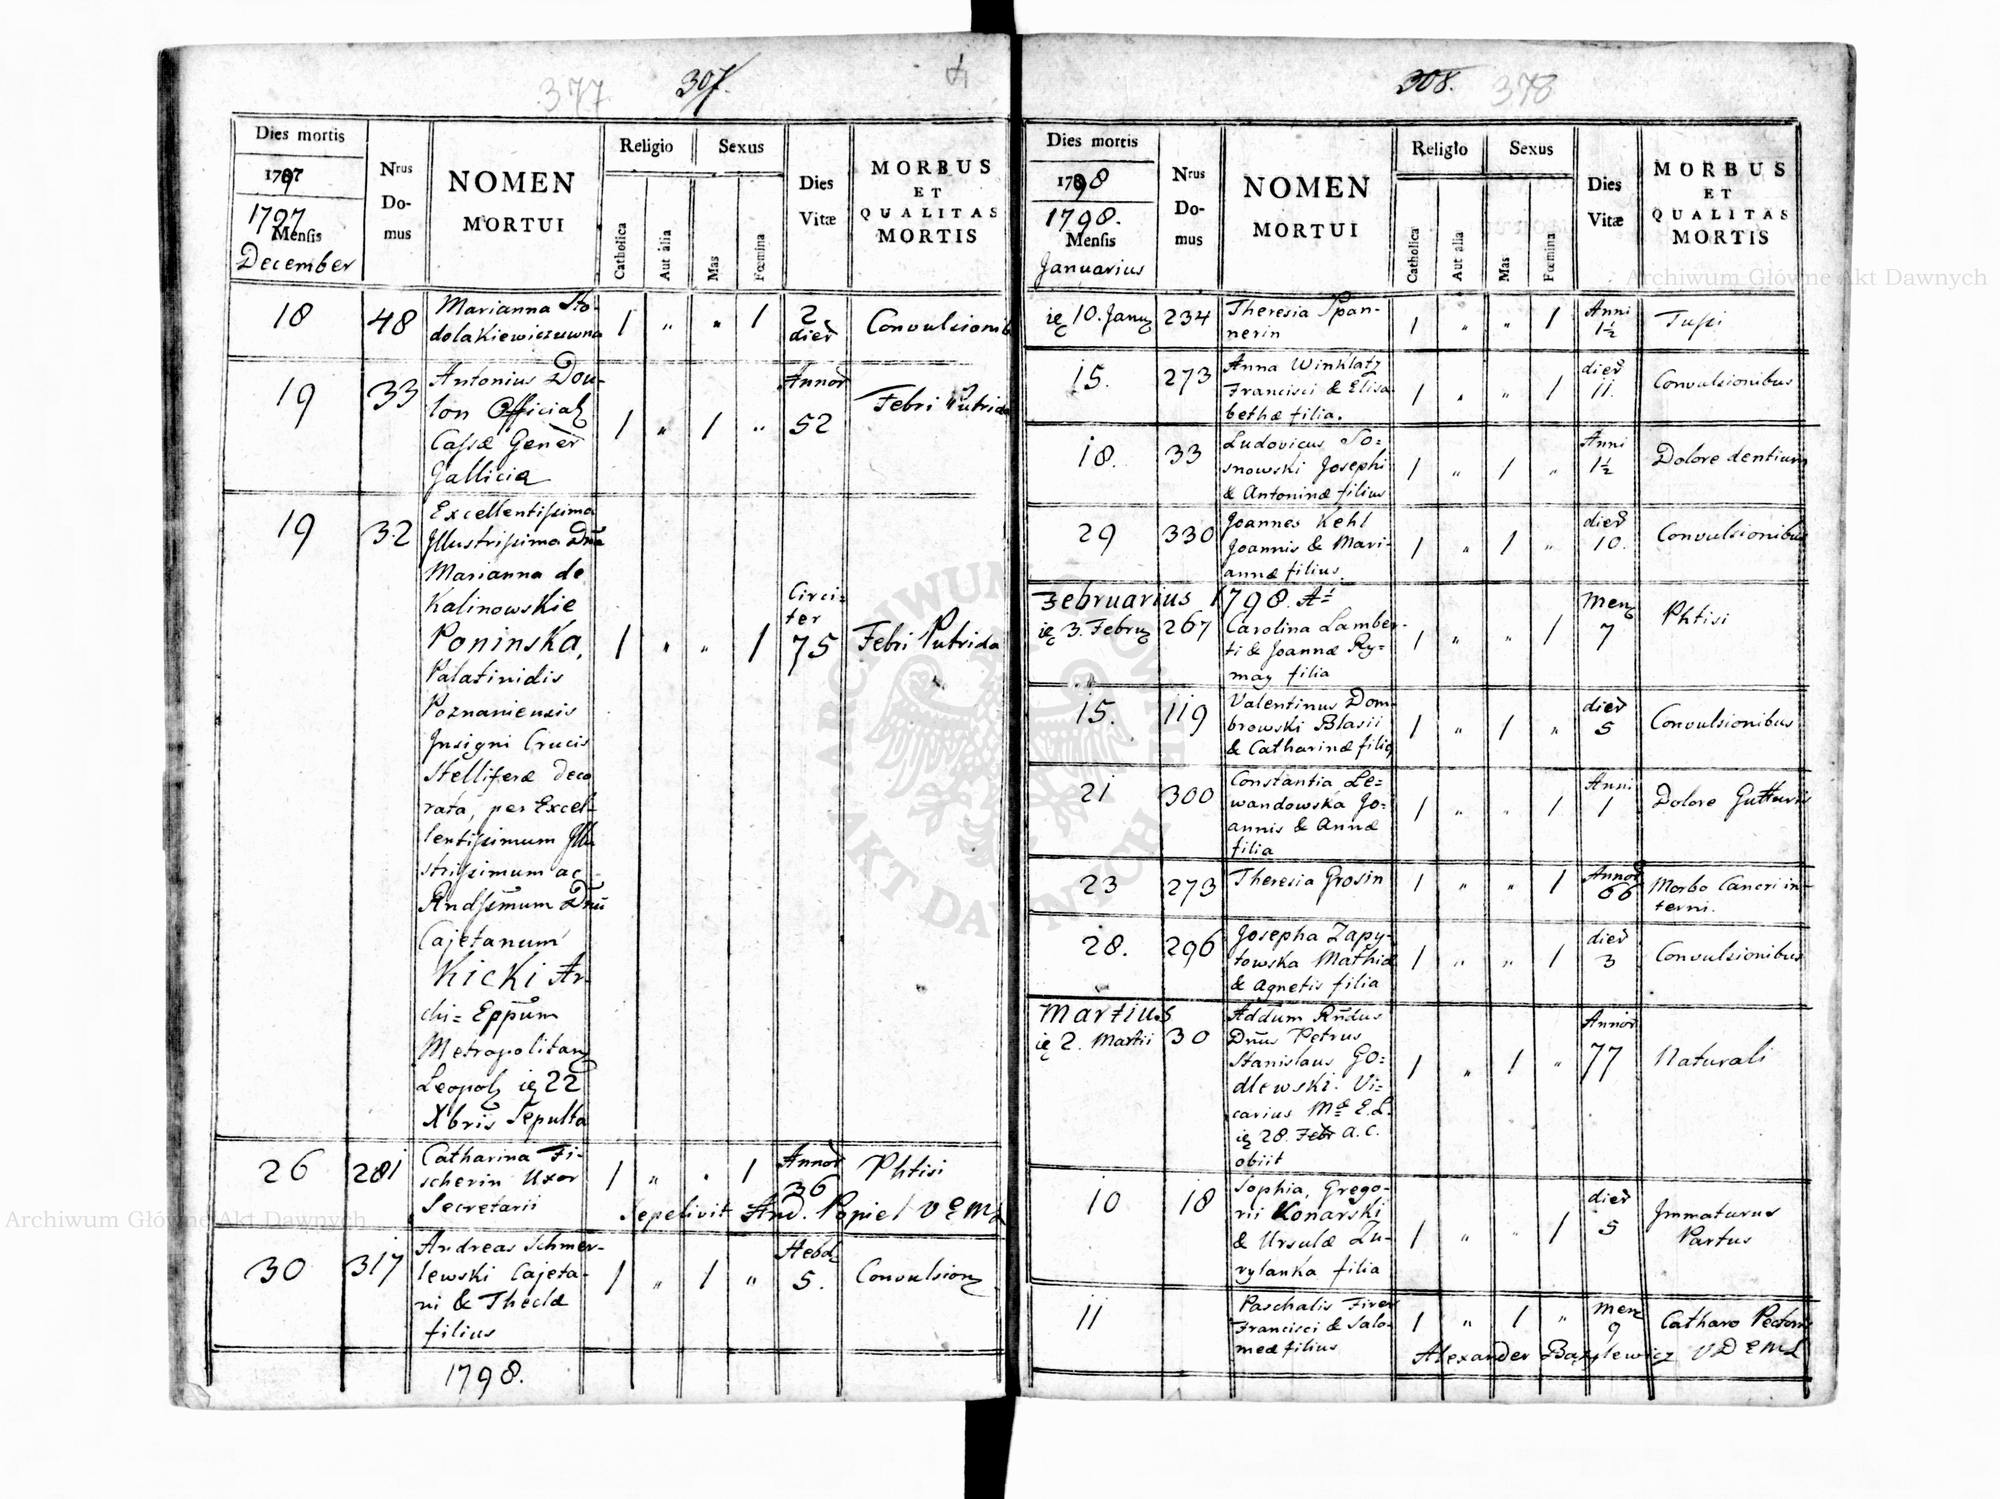 377 307.
Dies mortis
1797
1797
Mensis
December
Nrus Do-
mus
NOMEN
MORTUI
Religio
Catholica
Aut alia
Sexus
Mas
Fœmina
Dies
Vitæ
MORBUS
ET
QUALITAS
MORTIS
18 48 Marianna Sto-
dolakiewiczuwna 1 " " 1 2 dier Convulsionib
19 33 Antonius Dou-
lon Official
Cassæ Gener
Galliciæ 1 " 1 " Annor 52 Febri Putrida
19 32 Excellentissima
Illustrissima Dna
Marianna de
Kalinowskie
Poninska, 1 " " 1 Circi=
ter
75 Febri Putrida
Palatinidis
Poznaniensis
Insigni Crucis
Stelliferæ Deco
rata, per Excel-
lentissimum Illu
strissimum ac
Rndssimum Dnu
Cajetanum
Kicki Ar-
chi= Eppum
Metropolitan
Leopol ię 22
Xbris Sepulta
26 281 Catharina Fi-
scherin Uxor
Secretarii 1 " " 1 Annor 36 Phtisi
Sepelivit And. Popiel V E M L
30 317 Andreas Schmer-
lewski Cajeta-
ni & Theclæ
filius 1 " 1 " Hebd 5. Convulsion
1798.
308. 378
Dies mortis
1798
1798.
Mensis
Januarius
Nrus
Do-
mus
NOMEN
MORTUI
Religio
Catholica
Aut alia
Sexus
Mas
Fœmina
Dies
Vitæ
MORBUS
ET
QUALITAS
MORTIS
ię 10. Janu 234 Theresia Span-
nerin 1 " " 1 Anni 1½ Tussi
15. 273 Anna Winklatz
Francisci & Elisa
bethæ filia. 1 " " 1 dier 11. Convulsionibus
18. 33 Ludovicus So=
snowski Josephi
& Antoninæ filius 1 " 1 " Anni 1½ Dolore dentium
29 330 Joannes Kehl
Joannis & Mari-
annæ filius 1 " 1 " dier 10. Convulsionibus
Februarius 1798. A
ię 3. Febru 267 Carolina Lamber-
ti & Joannæ Ry=
may filia 1 " " 1 Men 7 Phtisi
15. 119 Valentinus Dom
browski Blasii
& Catharinæ filiq 1 " 1 " dier 5 Convulsionibus
21 300 Constantia Le=
wandowska Jo=
annis & Annæ
filia 1 " " 1 Anni 1 Dolore Gutturis
23 273 Theresia Grosin 1 " " 1 Annor 66 Morbo Cancri in-
terni.
28. 296 Josepha Zapy-
towska Mathiæ
& Agnetis filia 1 " " 1 dier 3 Convulsionibus
Martius
ię 2. Martii 30 Addum Rndus
Dnus Petrus
Stanislaus Go=
dlewski. Vi=
carius M E.L.
ię 28. Febr a.c.
obiit 1 " 1 " Annor 77 Naturali
10 18 Sophia, Grego-
rii Konarski
& Ursulæ Zu-
rylanka filia 1 " " 1 dier 5 Immaturus
Partus
11 Paschalis Firer
Francisci & Salo-
meæ filius 1 " 1 " Men 9 Catharo Pectoris
Alexander Bazylewicz V D E M L
Archiwum Główne Akt Dawnych
Archiwum Główne Akt Dawnych
ARCHIWUM GŁÓWNE AKT DAWNYCH